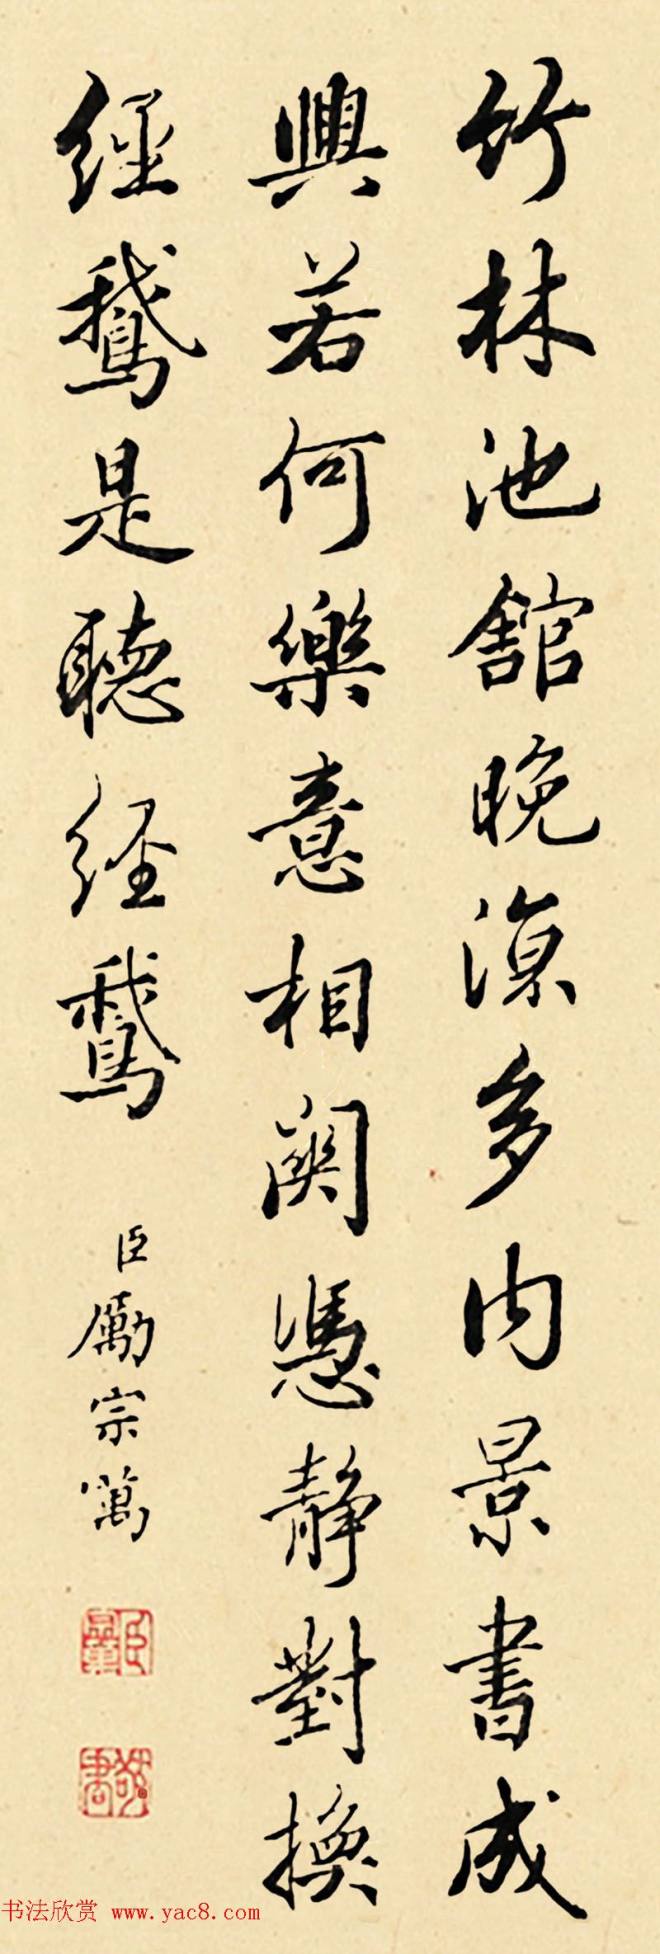 竹林池舘晚涼多内景書成
興若何樂意相関憑靜對換
經鵞是聽經鵞
臣勵宗萬
书法欣赏 www.yac8.com